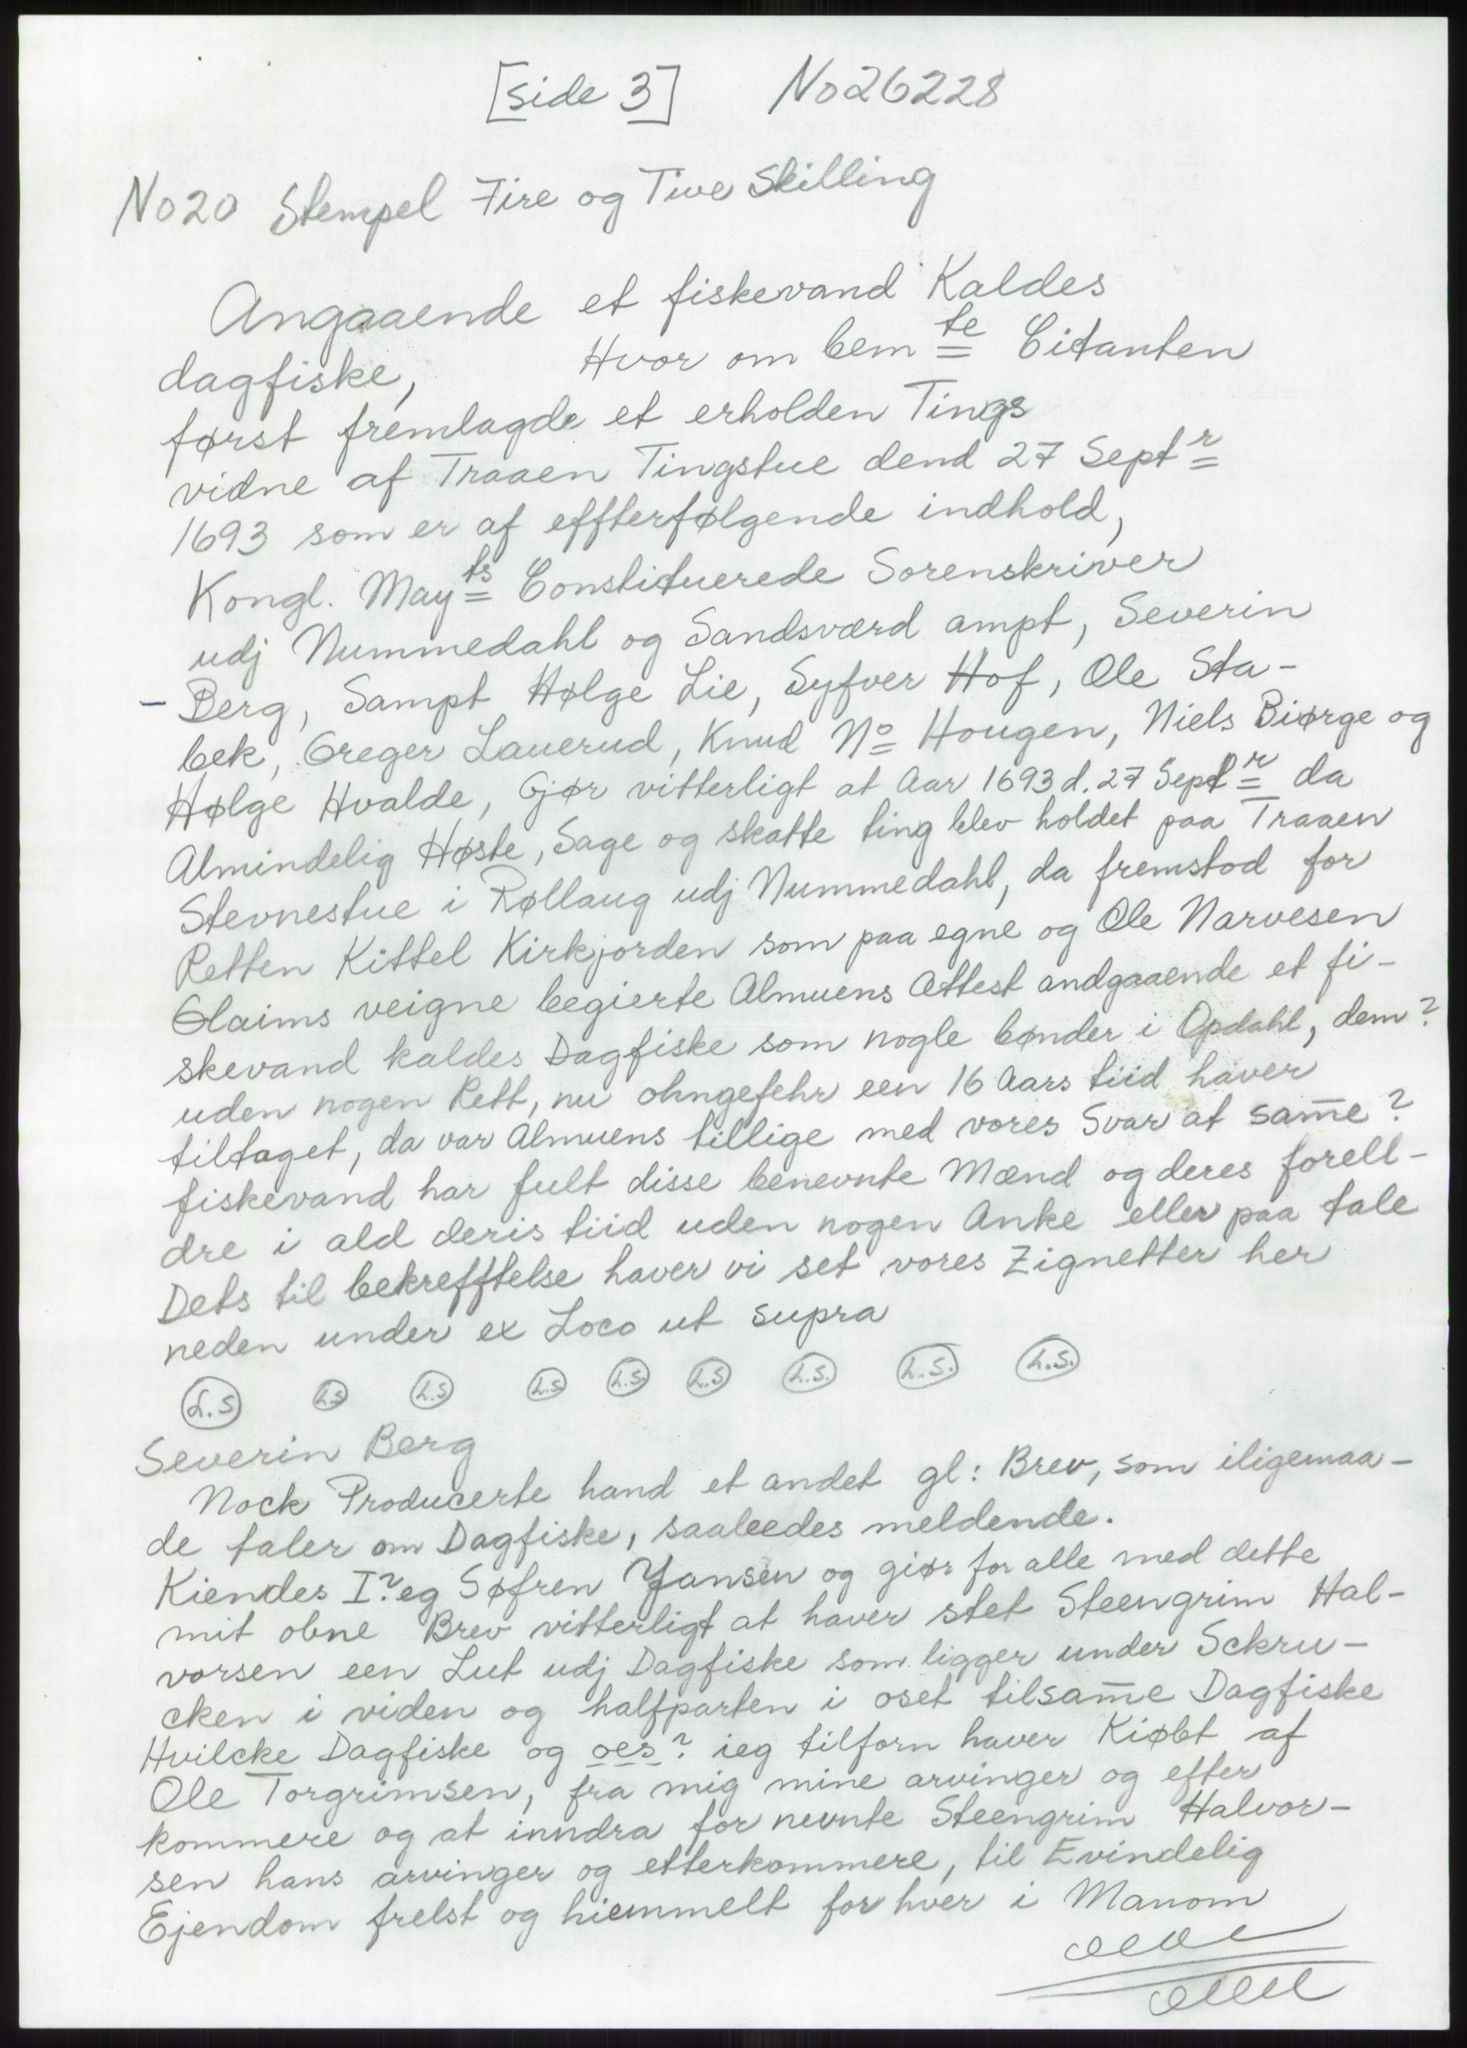 [side 3] No 26228
No 20 Stempel Fire og Tive Skilling
Angaaende et fiskevand Kaldes
dagfiske, Hvor om bem te Citanten
først fremlagde et erholden Tings
vidne af Traaen Tingstue dend 27 Sept r
1693 som er af effterfølgende indhold,
Kongl. May ts Constituerede Sorenskriver
udj Nummedahl og Sandsværd ampt, Severin
- Berg, Sampt Hølge Lie, Syfver Hof, Ole Sta-
bek, Greger Lauerud, Knud No Hougen, Niels Biørge og
Hølge Hvalde, Gjør vitterligt at Aar 1693 d. 27 Sept r da
Almindelig Høste, Sage og skatte ting blev holdet paa Traaen
Stevnestue i Røllaug udj Nummedahl, da fremstod for
Retten Kittel Kirkjorden som paa egne og Ole Narvesen
Glaims veigne begierte Almuens Attest andgaaende et fi-
skevand kaldes Dagfiske som nogle bønder i Opdahl, dem?
uden nogen Rett, nu ohngefehr een 16 Aars tiid haver
tiltaget, da var Almuens tillige med vores Svar at sam̅e?
fiskevand har fult disse benevnte Mænd og deres forell-
dre i ald deris tiid uden nogen Anke eller paa tale
Dets til bekrefftelse haver vi set vores Zignetter her
neden under ex Loco ut supra
L.S L.S L.S L.S L.S L.S L.S. L.S. L.S.
Severin Berg
Nock Producerte hand et andet gl: Brev, som iligemaa-
de taler om Dagfiske, saaleedes meldende.
Kiendes I?eg Søfren Jansen og giør for alle med dette
mit obne Brev vitterligt at haver stet Steengrim Hal-
vorsen een Lut udj Dagfiske som ligger under Sckru-
cken i viden og halfparten i oset tilsam̅e Dagfiske
Hvilcke Dagfiske og oes? ieg tilforn haver Kiøbt af
Ole Torgrimsen, fra mig mine arvinger og efter
kommere og at inndra for nevnte Steengrim Halvor-
sen hans arvinger og etterkommere, til Evindelig
Ejendom frelst og hiemmelt for hver i Manom